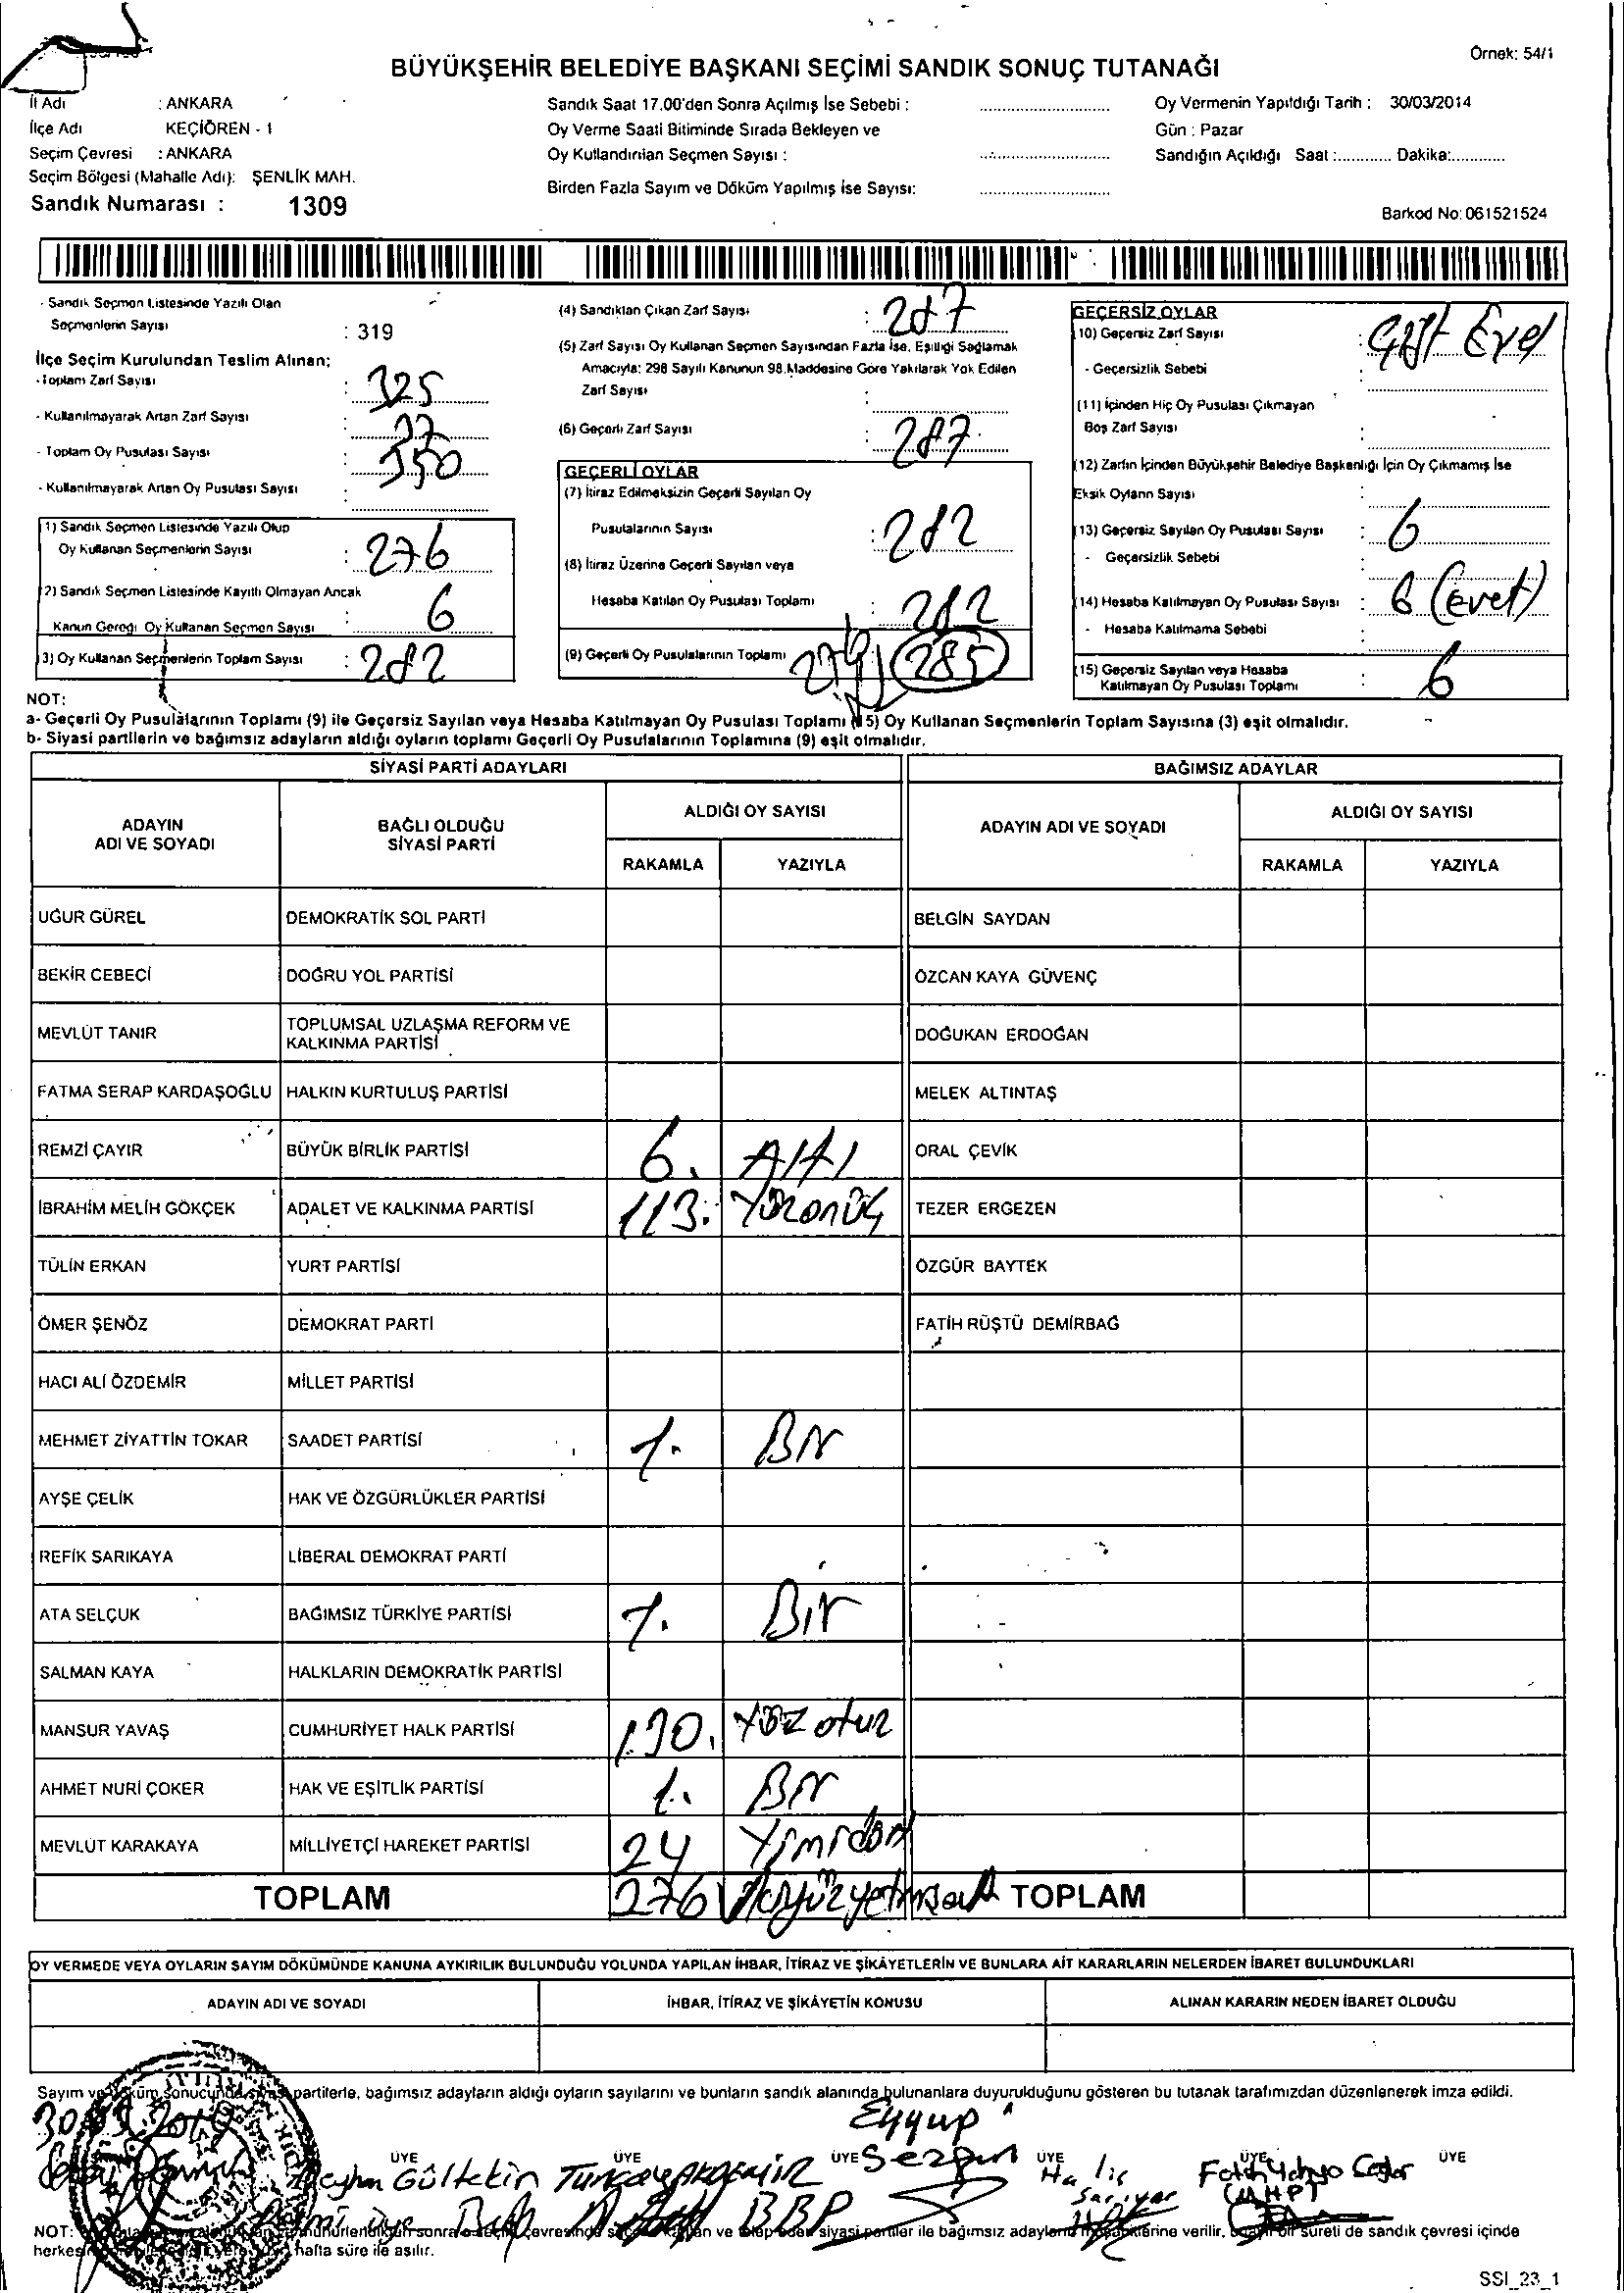 Örnek: 54/1
BÜYÜKŞEHİR BELEDİYE BAŞKANI SEÇİMİ SANDIK SONUÇ TUTANAĞI
İl Adı : ANKARA
İlçe Adı KEÇİÖREN - 1
Seçim Çevresi : ANKARA
Seçim Bölgesi (Mahalle Adı): ŞENLİK MAH.
Sandık Numarası : 1309
Sandık Saat 17.00'den Sonra Açılmış İse Sebebi :
Oy Verme Saati Bitiminde Sırada Bekleyen ve
Oy Kullandırılan Seçmen Sayısı :
Birden Fazla Sayım ve Döküm Yapılmış İse Sayısı:
Oy Vermenin Yapıldığı Tarih : 30/03/2014
Gün : Pazar
Sandığın Açıldığı Saat :............ Dakika:............
Barkod No: 061521524
- Sandık Seçmen Listesinde Yazılı Olan
Seçmenlerin Sayısı : 319
İlçe Seçim Kurulundan Teslim Alınan;
- Toplam Zarf Sayısı : 325
- Kullanılmayarak Artan Zarf Sayısı :
- Toplam Oy Pusulası Sayısı : 350
- Kullanılmayarak Artan Oy Pusulası Sayısı :
1) Sandık Seçmen Listesinde Yazılı Olup
Oy Kullanan Seçmenlerin Sayısı : 276
2) Sandık Seçmen Listesinde Kayıtlı Olmayan Ancak
Kanun Gereği Oy Kullanan Seçmen Sayısı : 6
3) Oy Kullanan Seçmenlerin Toplam Sayısı : 282
(4) Sandıktan Çıkan Zarf Sayısı : 287
(5) Zarf Sayısı Oy Kullanan Seçmen Sayısından Fazla İse, Eşitliği Sağlamak
Amacıyla: 298 Sayılı Kanunun 98.Maddesine Göre Yakılarak Yok Edilen
Zarf Sayısı :
(6) Geçerli Zarf Sayısı : 287
GEÇERLİ OYLAR
(7) İtiraz Edilmeksizin Geçerli Sayılan Oy
Pusulalarının Sayısı : 282
(8) İtiraz Üzerine Geçerli Sayılan veya
Hesaba Katılan Oy Pusulası Toplamı : 282
(9) Geçerli Oy Pusulalarının Toplamı 285
GEÇERSİZ OYLAR
10) Geçersiz Zarf Sayısı :
- Geçersizlik Sebebi :
(11) İçinden Hiç Oy Pusulası Çıkmayan
Boş Zarf Sayısı :
(12) Zarfın İçinden Büyükşehir Belediye Başkanlığı İçin Oy Çıkmamış İse
Eksik Oyların Sayısı :
(13) Geçersiz Sayılan Oy Pusulası Sayısı : 6
- Geçersizlik Sebebi :
(14) Hesaba Katılmayan Oy Pusulası Sayısı : 6 (Evet)
- Hesaba Katılmama Sebebi :
(15) Geçersiz Sayılan veya Hesaba
Katılmayan Oy Pusulası Toplamı : 6
NOT:
a- Geçerli Oy Pusulalarının Toplamı (9) ile Geçersiz Sayılan veya Hesaba Katılmayan Oy Pusulası Toplamı (15) Oy Kullanan Seçmenlerin Toplam Sayısına (3) eşit olmalıdır.
b- Siyasi partilerin ve bağımsız adayların aldığı oyların toplamı Geçerli Oy Pusulalarının Toplamına (9) eşit olmalıdır.
SİYASİ PARTİ ADAYLARI BAĞIMSIZ ADAYLAR
ADAYIN ADI VE SOYADI BAĞLI OLDUĞU SİYASİ PARTİ ALDIĞI OY SAYISI ADAYIN ADI VE SOYADI ALDIĞI OY SAYISI
RAKAMLA YAZIYLA RAKAMLA YAZIYLA
UĞUR GÜREL DEMOKRATİK SOL PARTİ BELGİN SAYDAN
BEKİR CEBECİ DOĞRU YOL PARTİSİ ÖZCAN KAYA GÜVENÇ
MEVLÜT TANIR TOPLUMSAL UZLAŞMA REFORM VE KALKINMA PARTİSİ DOĞUKAN ERDOĞAN
FATMA SERAP KARDAŞOĞLU HALKIN KURTULUŞ PARTİSİ MELEK ALTINTAŞ
REMZİ ÇAYIR BÜYÜK BİRLİK PARTİSİ 6. Altı ORAL ÇEVİK
İBRAHİM MELİH GÖKÇEK ADALET VE KALKINMA PARTİSİ 113. Yüzonüç TEZER ERGEZEN
TÜLİN ERKAN YURT PARTİSİ ÖZGÜR BAYTEK
ÖMER ŞENÖZ DEMOKRAT PARTİ FATİH RÜŞTÜ DEMİRBAĞ
HACI ALİ ÖZDEMİR MİLLET PARTİSİ
MEHMET ZİYATTİN TOKAR SAADET PARTİSİ 1. Bir
AYŞE ÇELİK HAK VE ÖZGÜRLÜKLER PARTİSİ
REFİK SARIKAYA LİBERAL DEMOKRAT PARTİ
ATA SELÇUK BAĞIMSIZ TÜRKİYE PARTİSİ 1. Bir
SALMAN KAYA HALKLARIN DEMOKRATİK PARTİSİ
MANSUR YAVAŞ CUMHURİYET HALK PARTİSİ 130. Yüz otuz
AHMET NURİ ÇOKER HAK VE EŞİTLİK PARTİSİ 1. Bir
MEVLÜT KARAKAYA MİLLİYETÇİ HAREKET PARTİSİ 24 Yimidört
TOPLAM 276 TOPLAM
OY VERMEDE VEYA OYLARIN SAYIM DÖKÜMÜNDE KANUNA AYKIRILIK BULUNDUĞU YOLUNDA YAPILAN İHBAR, İTİRAZ VE ŞİKÂYETLERİN VE BUNLARA AİT KARARLARIN NELERDEN İBARET BULUNDUKLARI
ADAYIN ADI VE SOYADI İHBAR, İTİRAZ VE ŞİKÂYETİN KONUSU ALINAN KARARIN NEDEN İBARET OLDUĞU
Sayım ve partilerle, bağımsız adayların aldığı oyların sayılarını ve bunların sandık alanında bulunanlara duyurulduğunu gösteren bu tutanak tarafımızdan düzenlenerek imza edildi.
ÜYE ÜYE ÜYE ÜYE ÜYE ÜYE
Gültekin Tuncay AKDEMİR Eyyup Sezgin Fatih Yahya
BBP (MHP)
NOT: sonra ve siyasi partiler ile bağımsız adayların verilir, sureti de sandık çevresi içinde
hafta süre ile asılır.
SSI_23_1